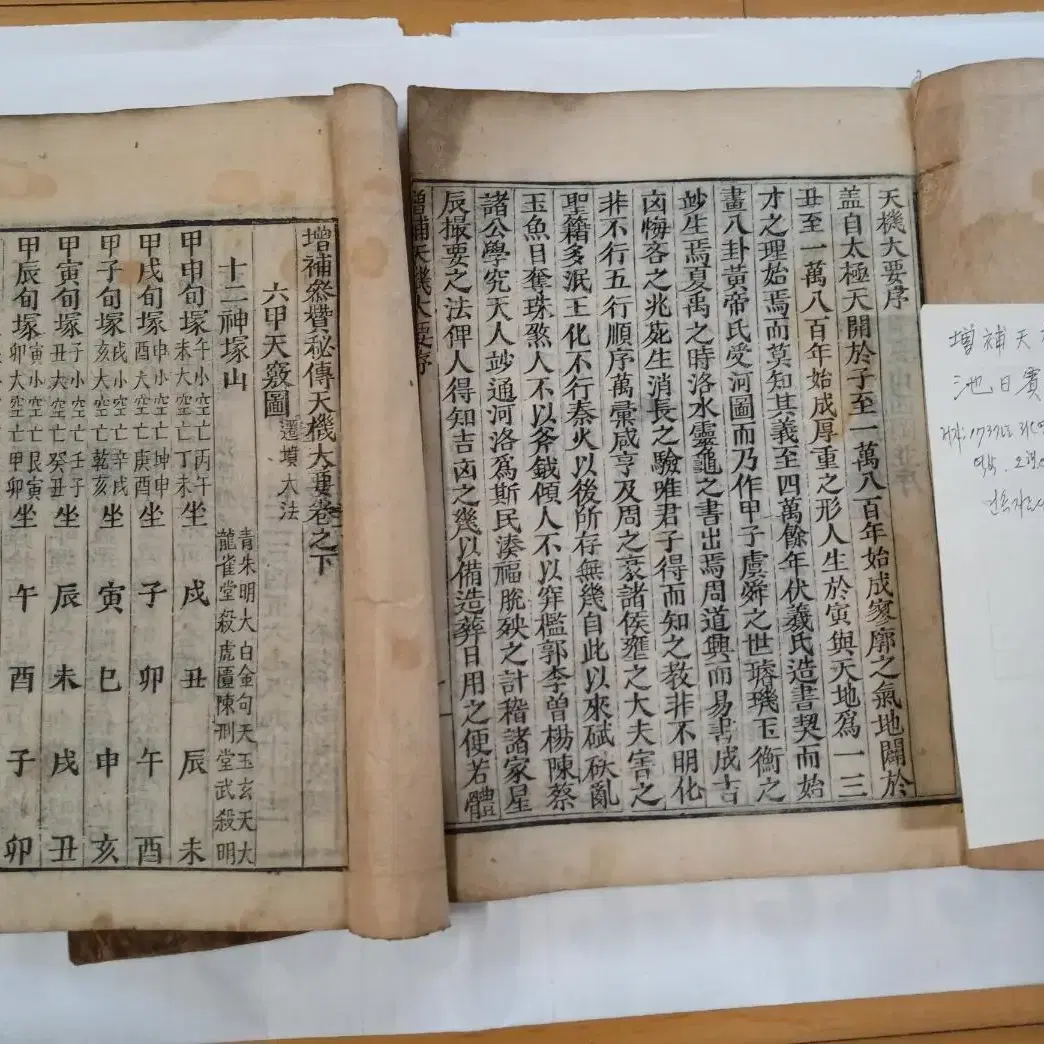 天機大要序
盖自太極天開於子至一萬八百年始成寥廓之氣地闢於
丑至一萬八百年始成厚重之形人生於寅與天地爲一三
才之理始焉而莫知其義至四萬餘年伏羲氏造書契而始
畫八卦黃帝氏受河圖而乃作甲子虞舜之世璿璣玉衡之
妙生焉夏禹之時洛水靈龜之書出焉周道興而易書成吉
凶悔吝之兆死生消長之驗唯君子得而知之教非不明化
非不行五行順序萬彙咸亨及周之衰諸侯壅之大夫害之
聖籍多泯王化不行秦火以後所存無幾自此以來碔砆亂
玉魚目奪珠煞人不以斧鉞傾人不以穽檻郭李曽楊陳蔡
諸公學究天人竗通河洛爲斯民湊福脫殃之計稽諸家星
辰撮要之法俾人得知吉凶之幾以備造葬日用之便若體
增補天機大要序
增補叅賛秘傳天機大要卷之下
六甲天竅圖 遷墳大法
十二神塚山
青朱明大白金句天玉玄天大
龍雀堂殺虎匱陳刑堂武殺明
甲申旬塚 午小空亡丙午 未大空亡丁未 坐 戌 丑 辰 未
甲戌旬塚 申小空亡坤申 酉大空亡庚酉 坐 子 卯 午 酉
甲子旬塚 戌小空亡辛戌 亥大空亡乾亥 坐 寅 巳 申 亥
甲寅旬塚 子小空亡壬子 丑大空亡癸丑 坐 辰 未 戌 丑
甲辰旬塚 寅小空亡艮寅 卯大空亡甲卯 坐 午 酉 子 卯
增補天
池日賓
저자: 1737년